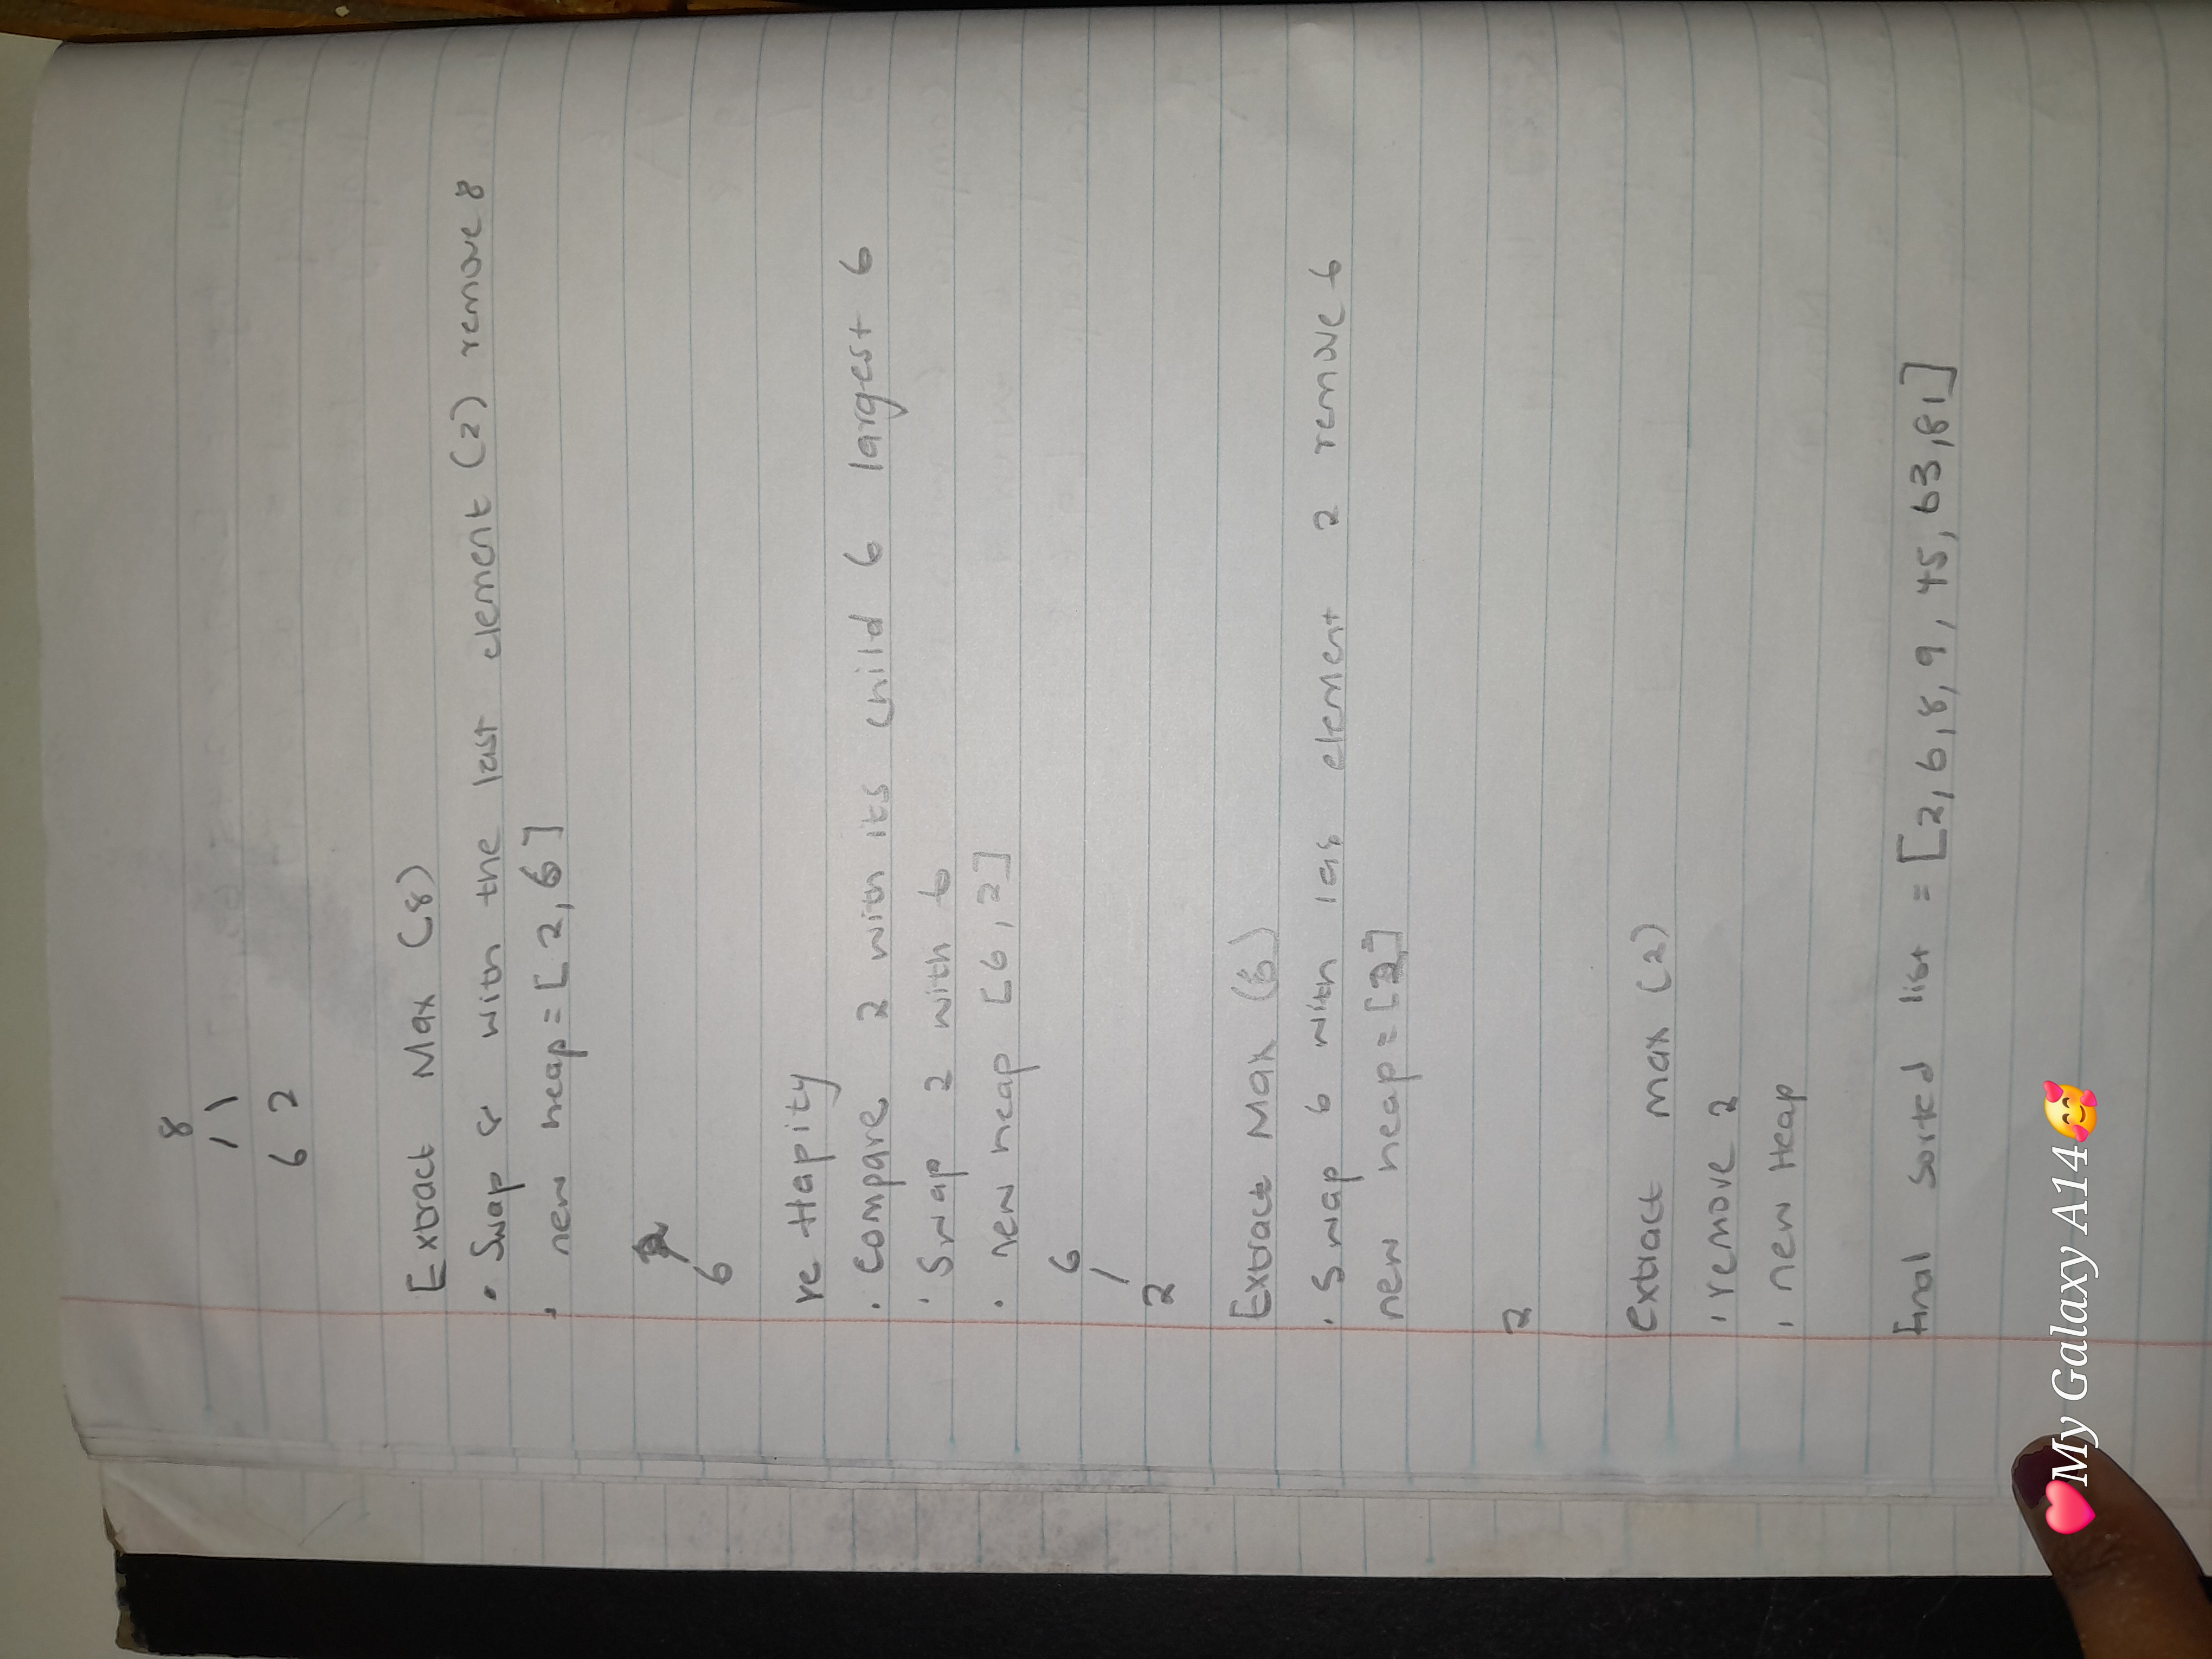 8
/ \
6 2
Extract Max (8)
• Swap 8 with the last element (2) remove 8
• new heap = [2, 6]
2
/
6
re Hapity
• Compare 2 with its child 6 largest 6
• Swap 2 with 6
• new heap [6, 2]
6
/
2
Extract Max (6)
• Swap 6 with las element 2 remove 6
new heap = [2]
2
extract max (2)
• remove 2
• new Heap
Final sorted list = [2, 6, 8, 9, 45, 63, 81]
❤️My Galaxy A14🥰